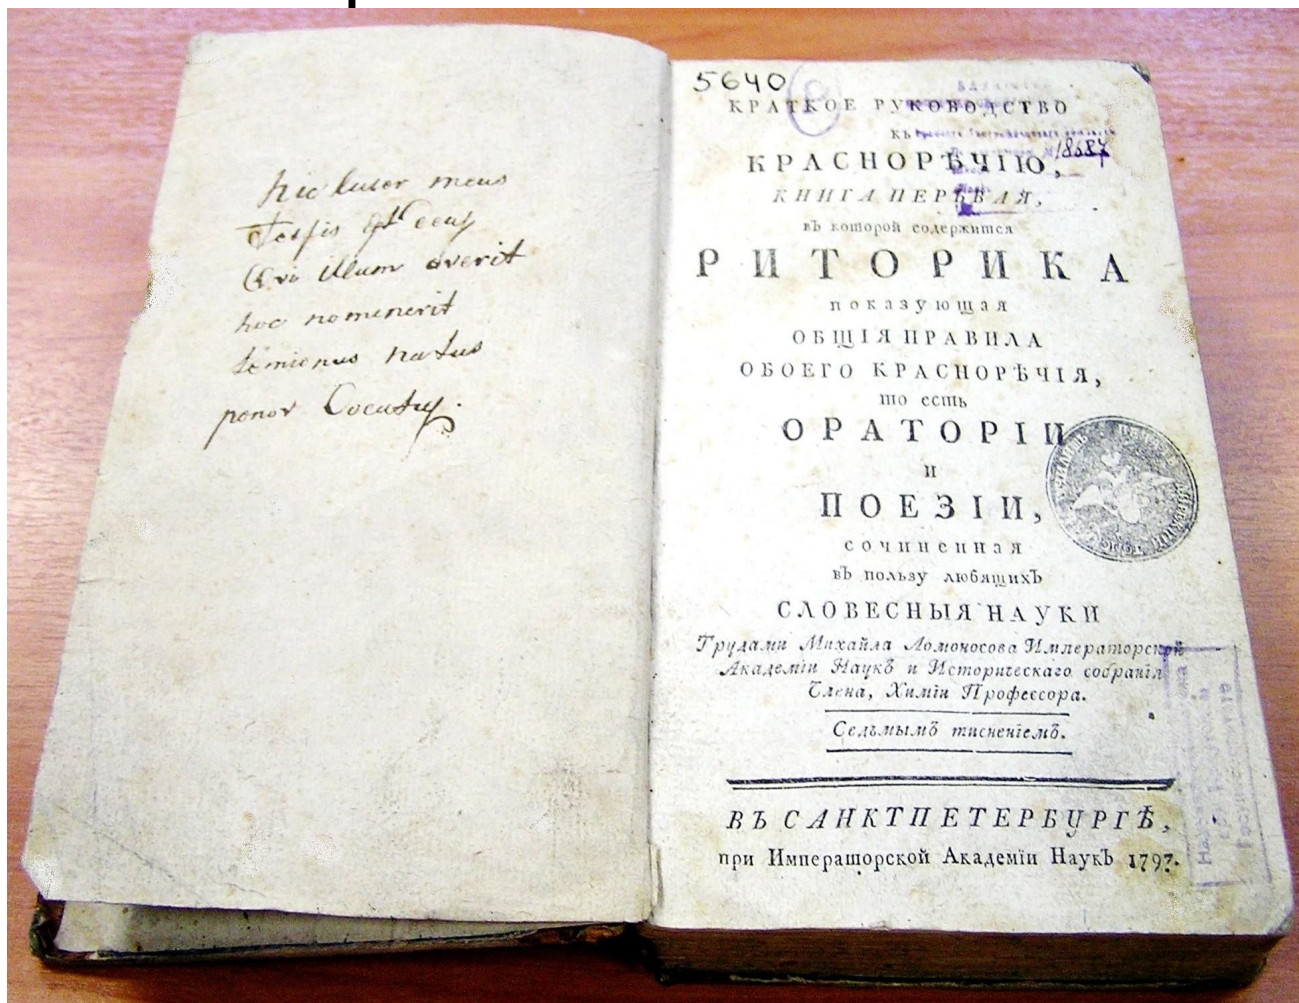 hic liber meus
Testis est Deus
Qui illum
hoc nomenerit
natus
5640
КРАТКОЕ РУКОВОДСТВО
КЪ
КРАСНОРѢЧІЮ,
18687
КНИГА ПЕРЬВАЯ,
въ которой содержится
РИТОРИКА
показующая
ОБЩІЯ ПРАВИЛА
ОБОЕГО КРАСНОРѢЧІЯ,
то есть
ОРАТОРІИ
И
ПОЕЗІИ,
сочиненная
въ пользу любящихъ
СЛОВЕСНЫЯ НАУКИ
Трудами Михайла Ломоносова Императорской
Академіи Наукъ и Историческаго собранія
Члена, Химіи Профессора.
Седьмымъ тисненіемъ.
ВЪ САНКТПЕТЕРБУРГѢ,
при Императорской Академіи Наукъ 1797.